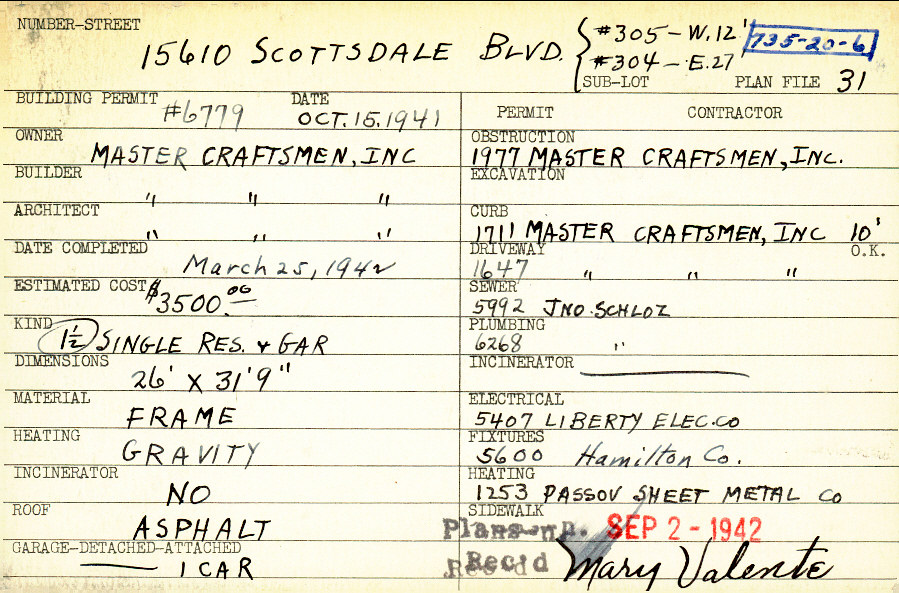 NUMBER-STREET
15610 SCOTTSDALE BLVD. #305-W.12' 735-20-6
#304-E.27
SUB-LOT PLAN FILE 31
BUILDING PERMIT #6779 DATE OCT.15.1941
PERMIT CONTRACTOR
OWNER MASTER CRAFTSMEN, INC
OBSTRUCTION
1977 MASTER CRAFTSMEN, INC.
BUILDER " " "
EXCAVATION
ARCHITECT " " "
CURB
1711 MASTER CRAFTSMEN, INC 10'
DATE COMPLETED March 25, 1942
DRIVEWAY O.K.
1647 " " "
ESTIMATED COST $3500.00
SEWER
5992 JNO. SCHLOZ
KIND 1½ SINGLE RES. & GAR
PLUMBING
6268 "
DIMENSIONS 26' X 31'9"
INCINERATOR
MATERIAL FRAME
ELECTRICAL
5407 LIBERTY ELEC. CO
HEATING GRAVITY
FIXTURES
5600 Hamilton Co.
INCINERATOR NO
HEATING
1253 PASSOV SHEET METAL CO
ROOF ASPHALT
SIDEWALK
SEP 2-1942
GARAGE-DETACHED-ATTACHED
1 CAR
Rec'd Mary Valente